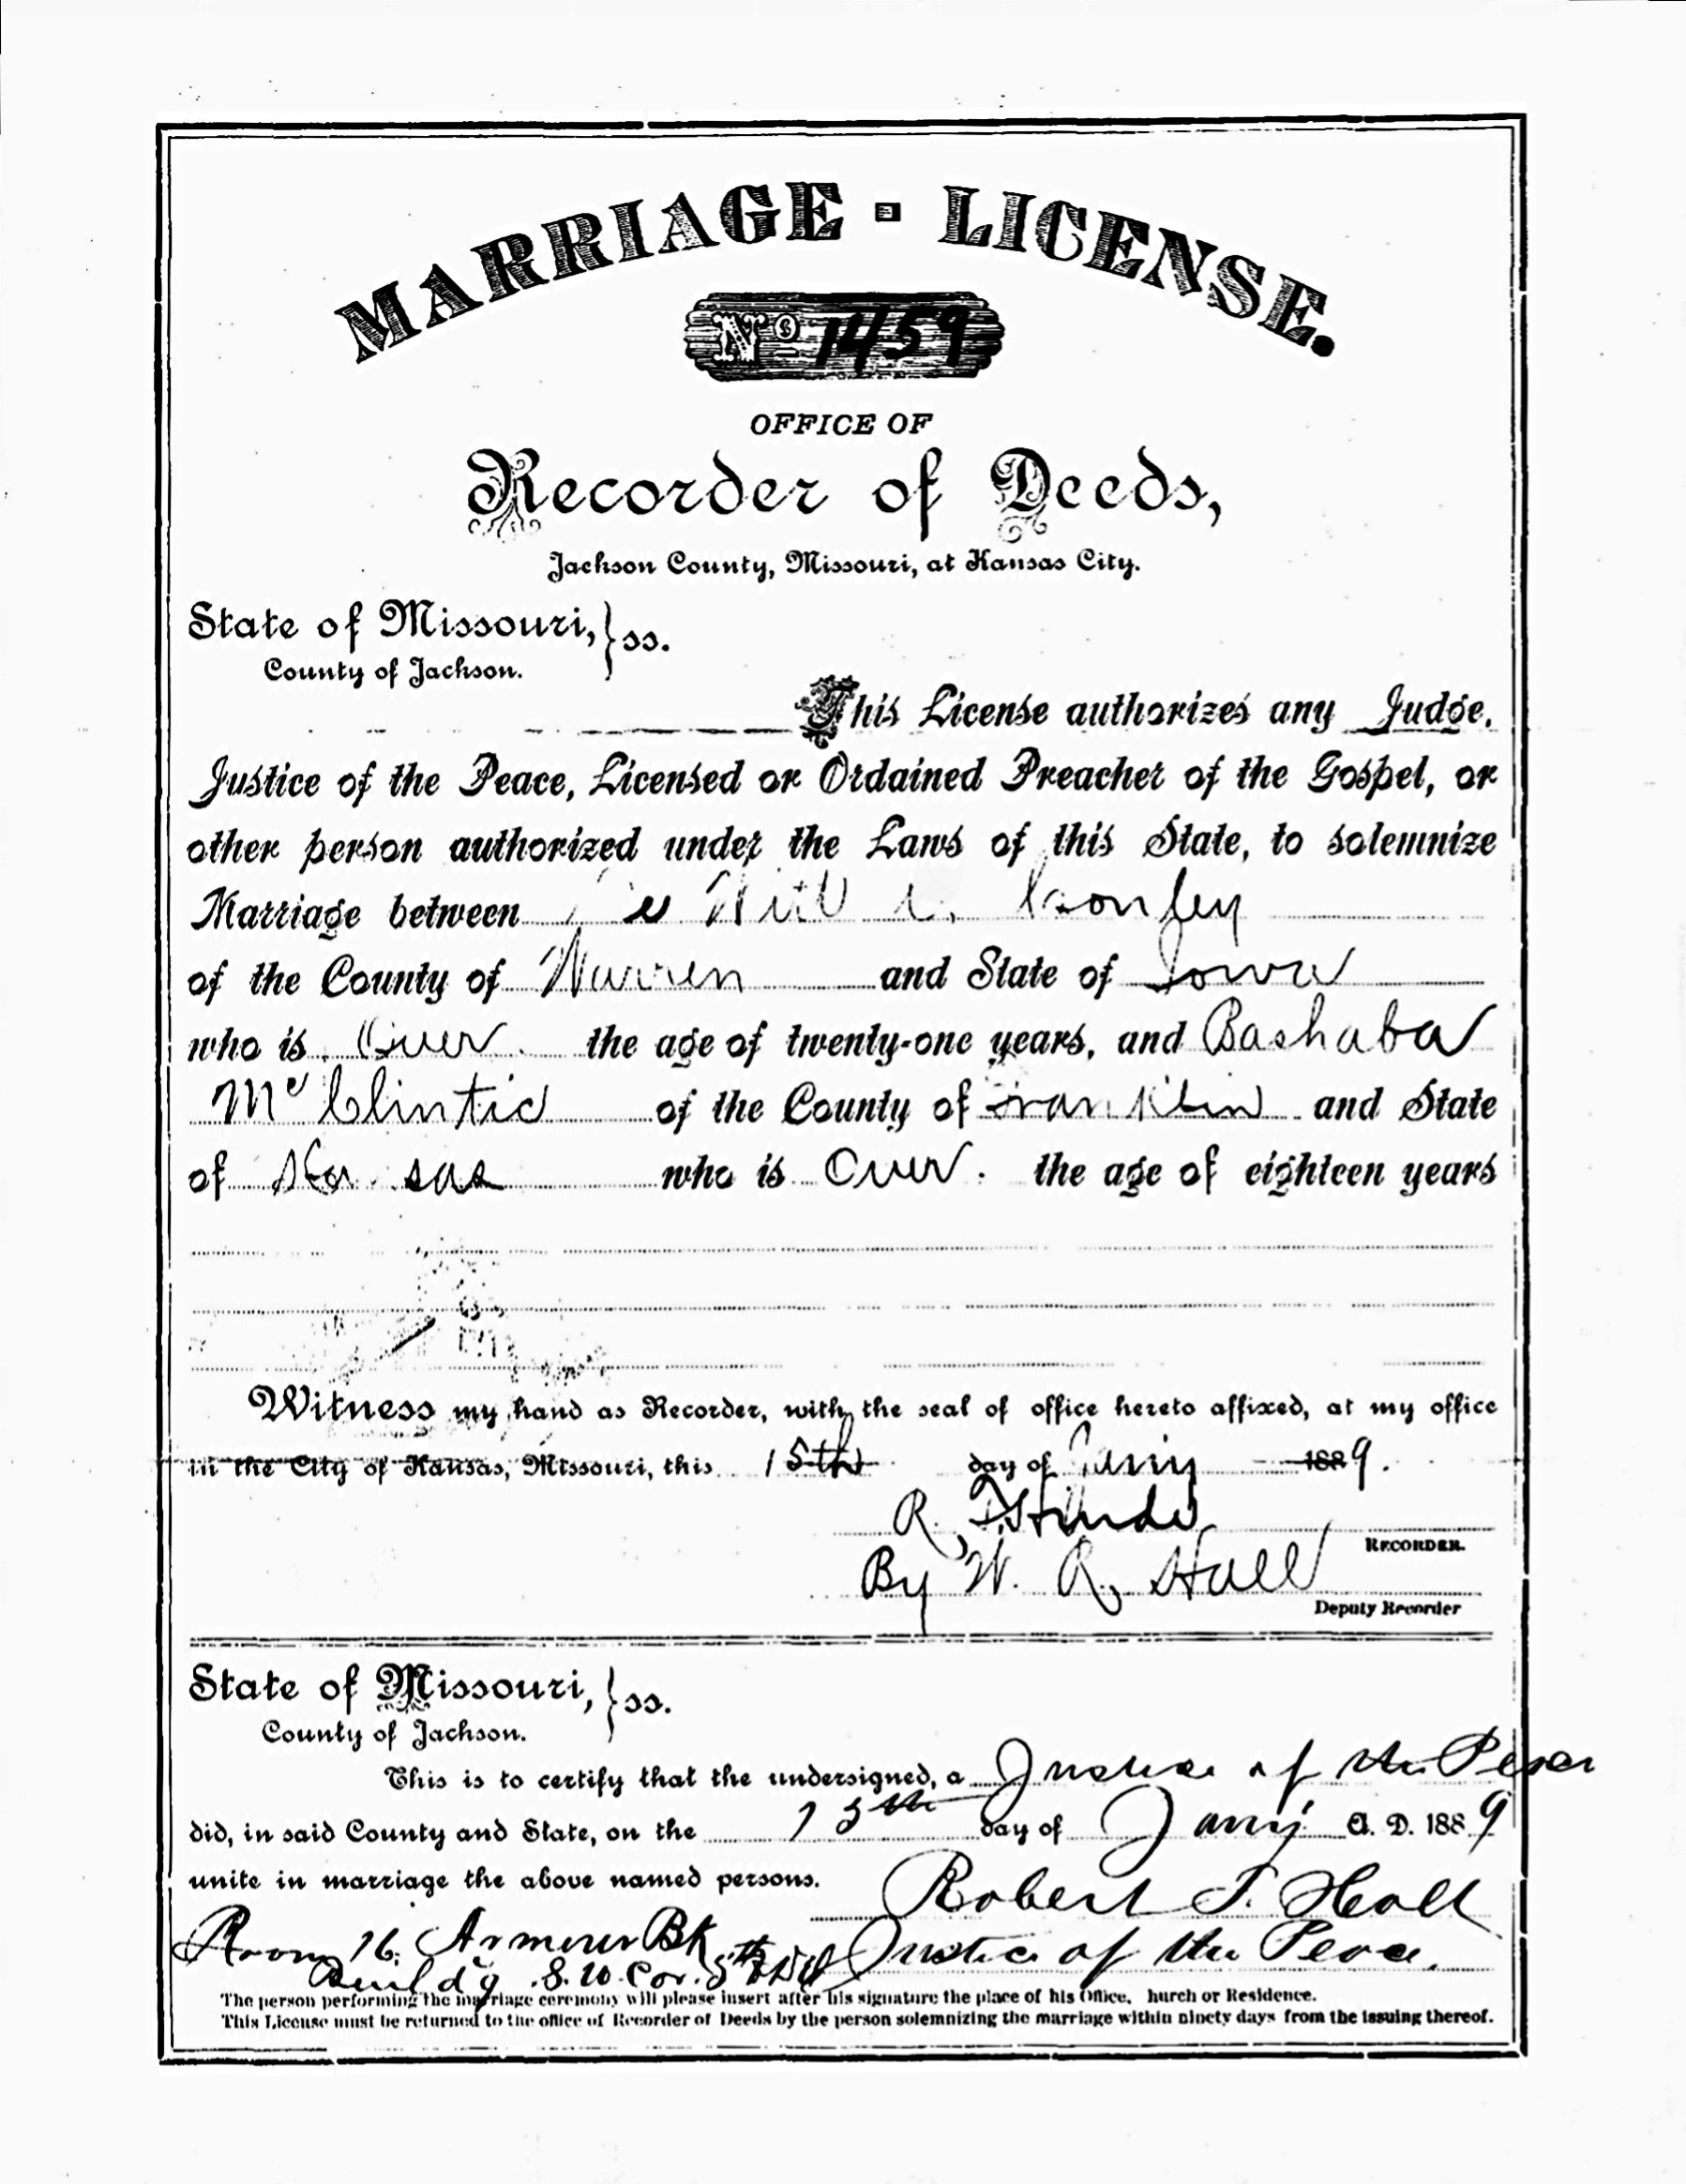 MARRIAGE - LICENSE.
No 1459
OFFICE OF
Recorder of Deeds,
Jackson County, Missouri, at Kansas City.
State of Missouri, } ss.
County of Jackson.
This License authorizes any Judge,
Justice of the Peace, Licensed or Ordained Preacher of the Gospel, or
other person authorized under the Laws of this State, to solemnize
Marriage between Will Conley
of the County of Warren and State of Iowa
who is Over the age of twenty-one years, and Bashaba
McClintic of the County of Franklin and State
of Kansas who is Over the age of eighteen years
Witness my hand as Recorder, with the seal of office hereto affixed, at my office
in the City of Kansas, Missouri, this 15th day of Jany 1889.
R. T. Hinde
RECORDER.
By W. R. Hall
Deputy Recorder
State of Missouri, } ss.
County of Jackson.
This is to certify that the undersigned, a Justice of the Peace
did, in said County and State, on the 15th day of Jany A. D. 1889
unite in marriage the above named persons.
Robert T. Hall
Room 16. Armour Bk Justice of the Peace.
Build'g S. W. Cor. 5th & Del
The person performing the marriage ceremony will please insert after his signature the place of his Office, hurch or Residence.
This License must be returned to the office of Recorder of Deeds by the person solemnizing the marriage within ninety days from the issuing thereof.